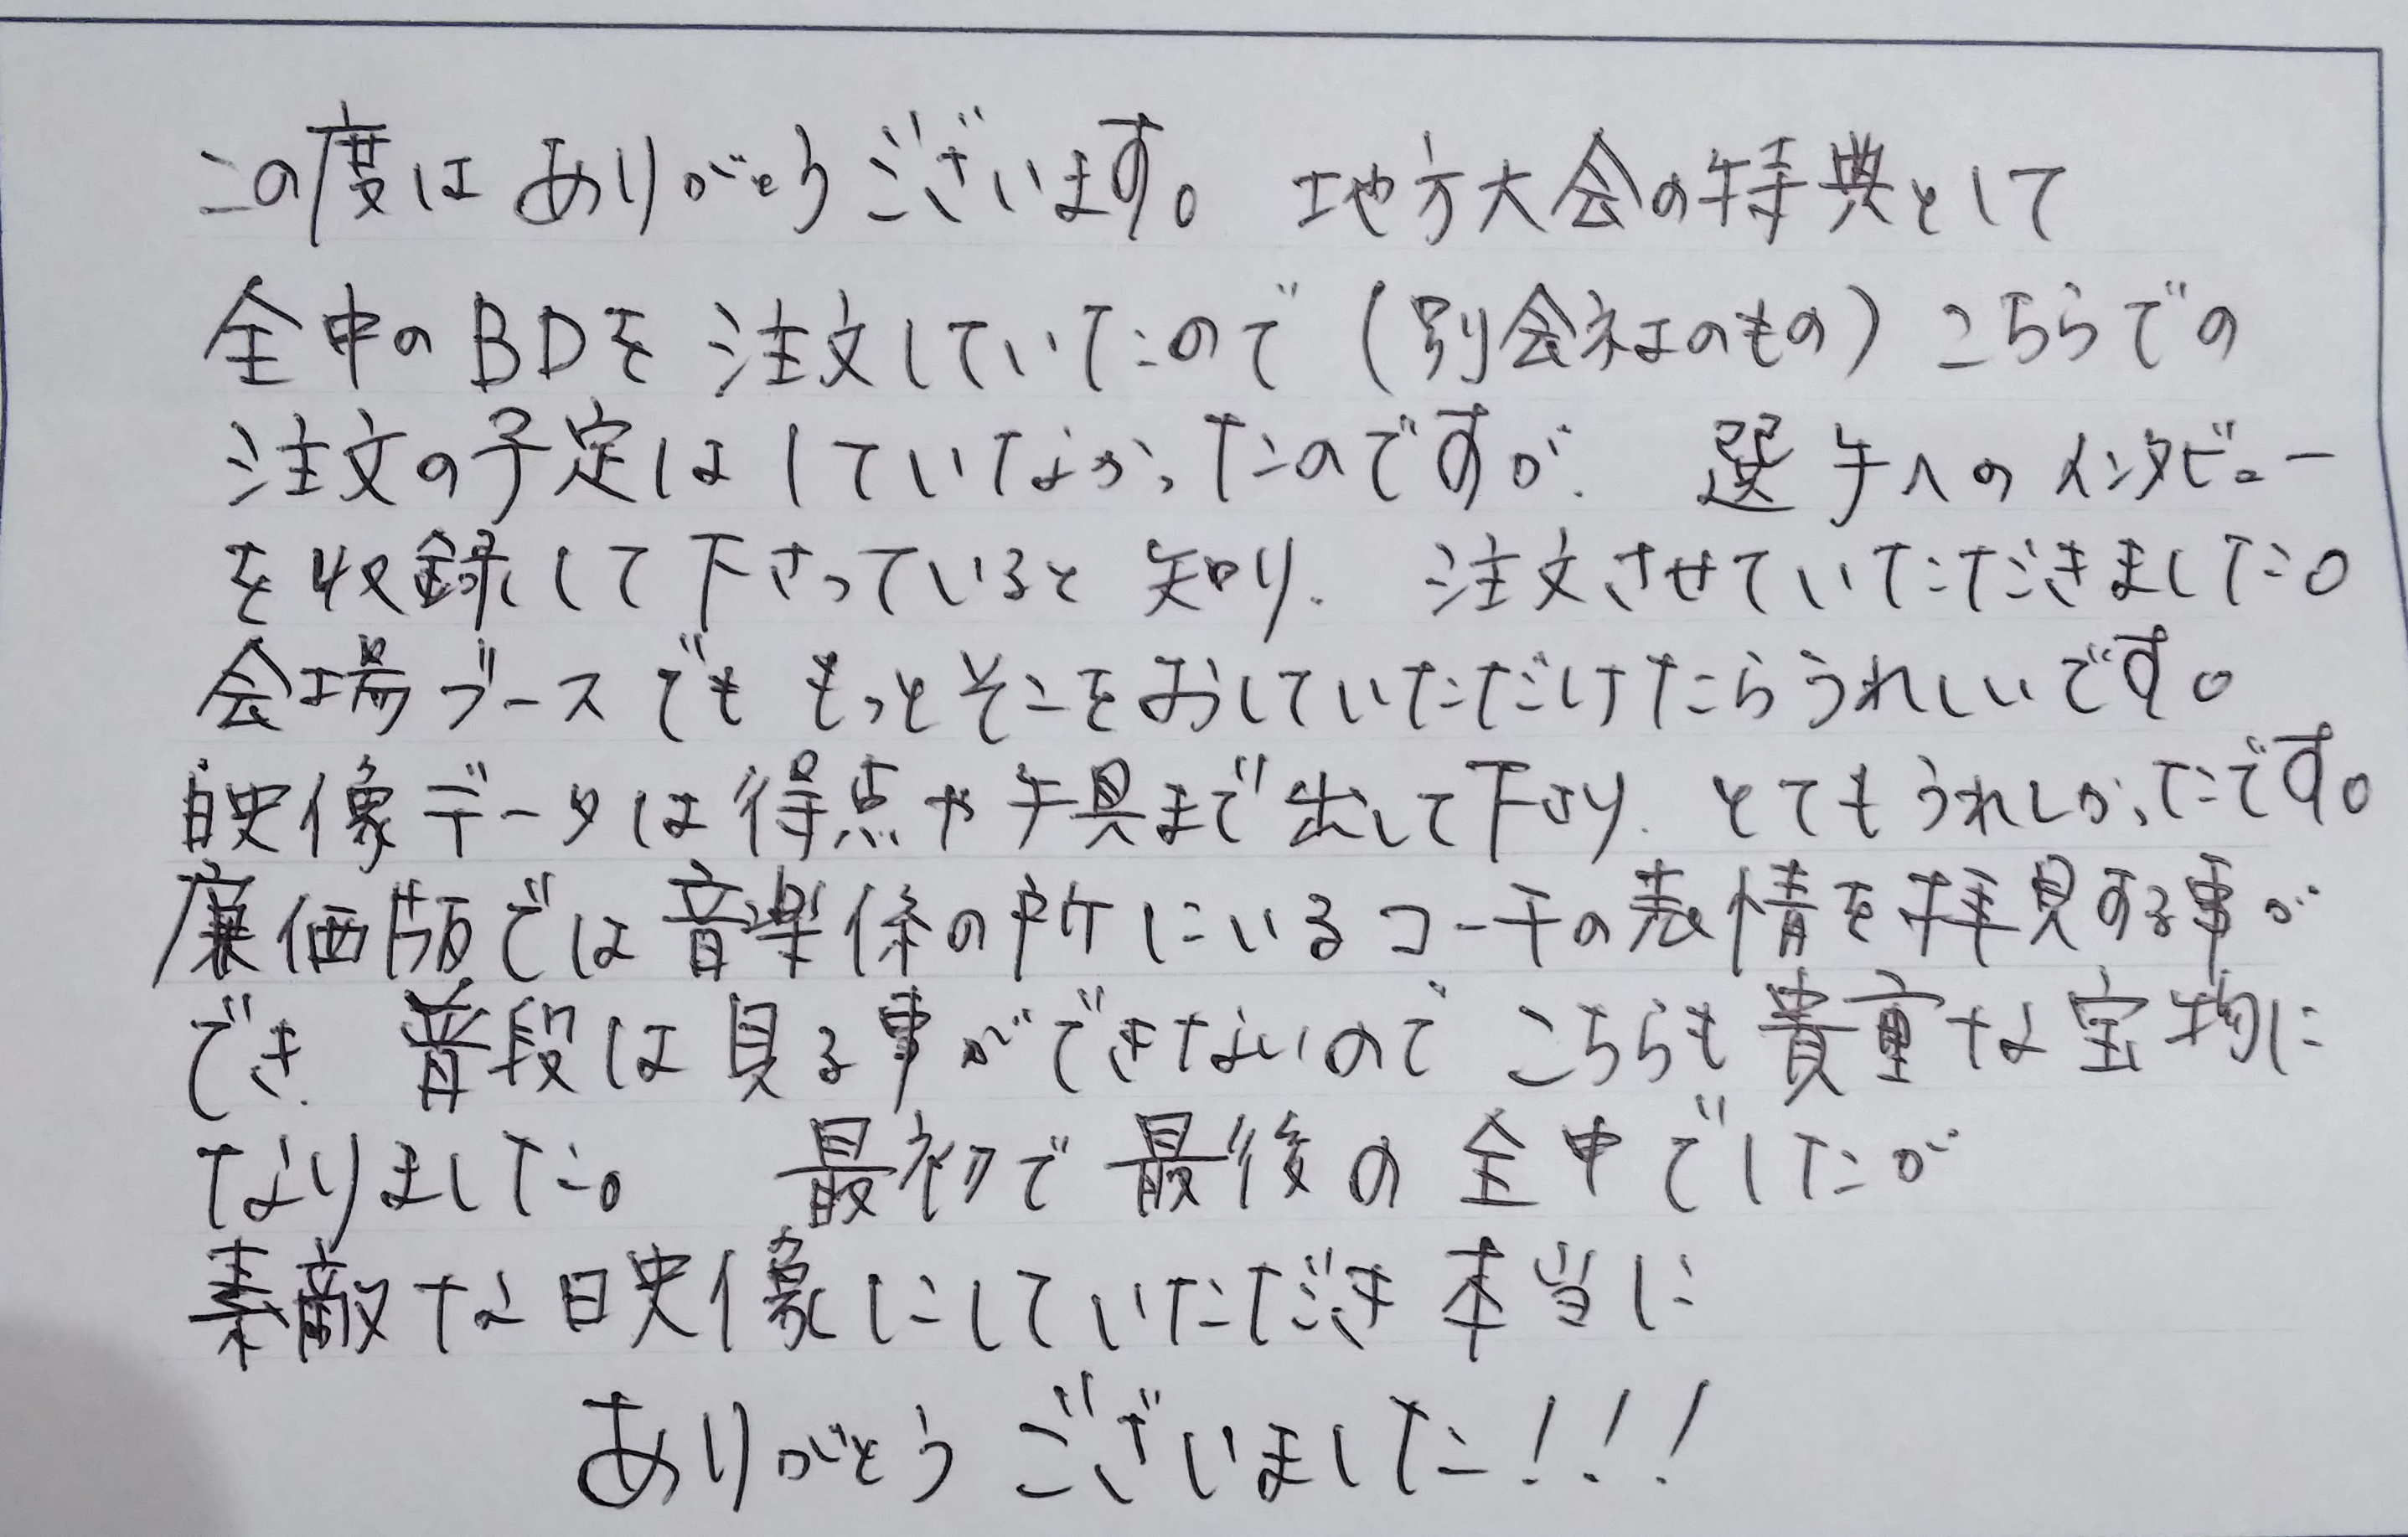 この度は ありがとうございます。 地方大会の特典として
全中のBDを 注文していたので（別会社のもの）こちらでの
注文の予定はしていなかったのですが、 選手へのインタビュー
を収録して下さっていると 知り、 注文させていただきました。
会場ブースでも もっとそこをおしていただけたらうれしいです。
映像データは得点や手具まで出して下さり、とてもうれしかったです。
廉価版では音楽係の所にいるコーチの表情を拝見する事が
でき、 普段は見る事ができないので こちらも貴重な宝物に
なりました。 最初で最後の全中でしたが
素敵な映像にしていただき 本当に
ありがとうございました！！！